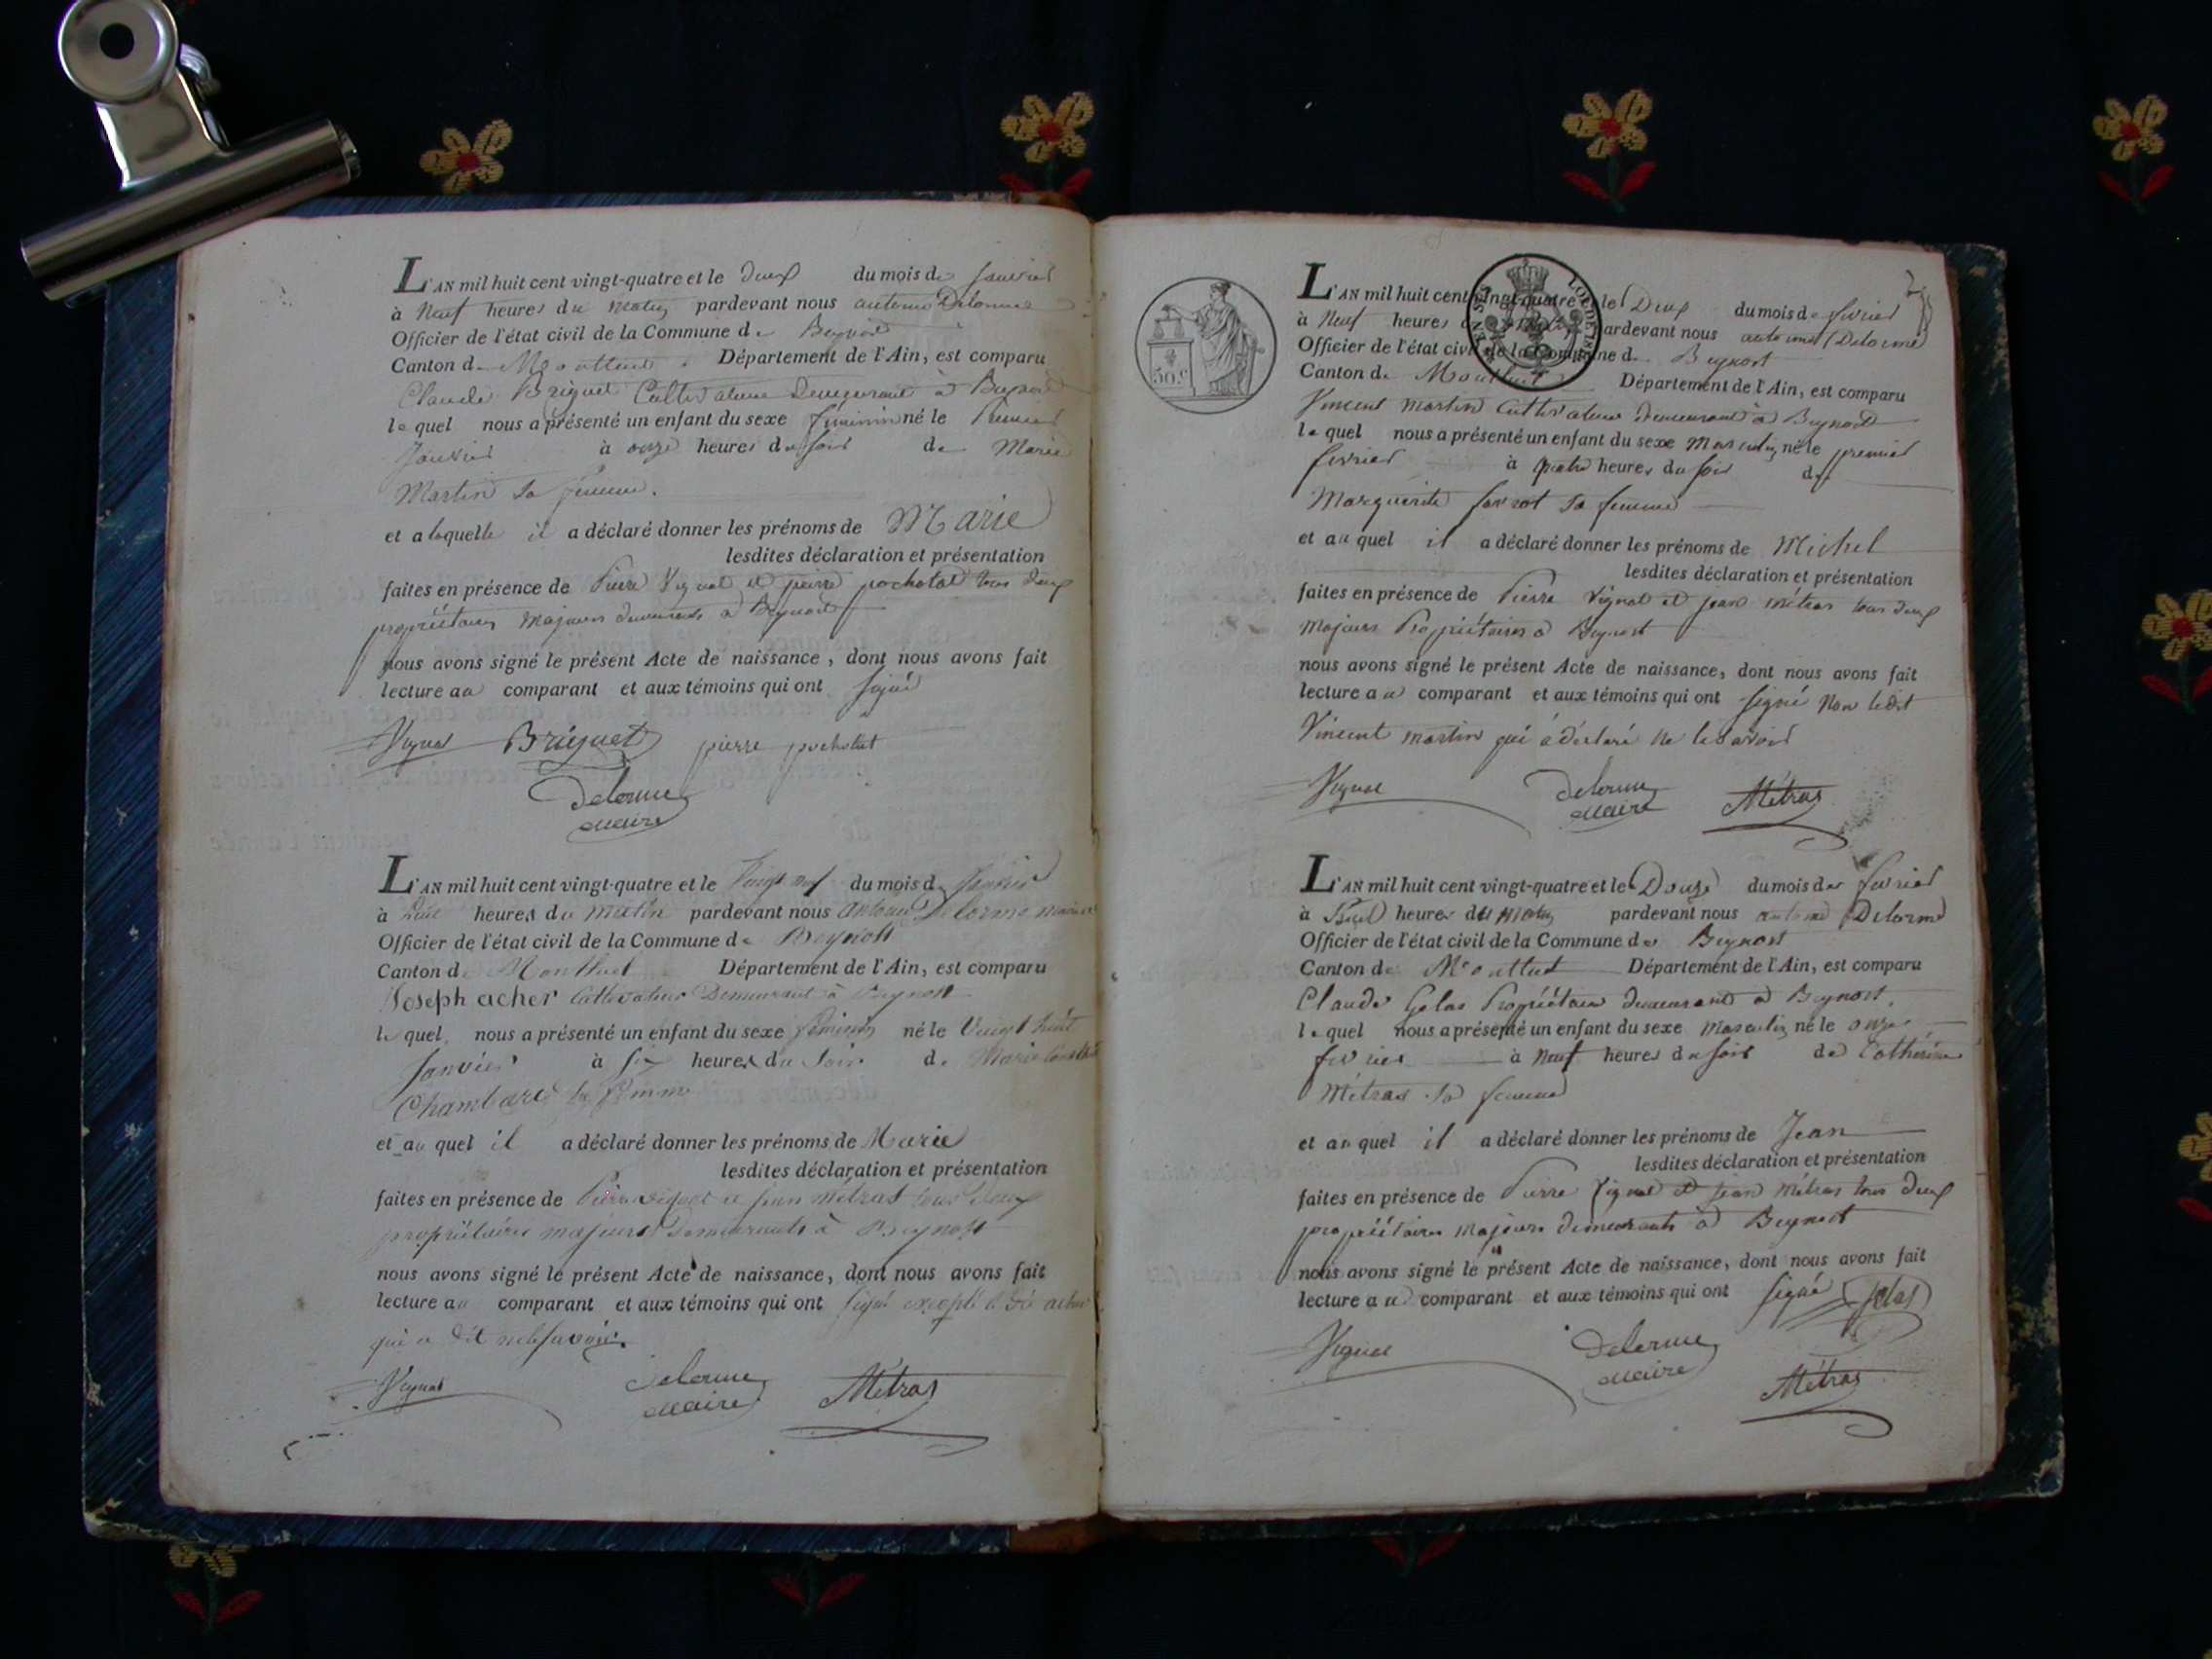 L'AN mil huit cent vingt-quatre et le deux du mois de janvier
à Neuf heures du matin pardevant nous antoine Delorme
Officier de l'état civil de la Commune de Beynost
Canton de Montluel Département de l'Ain, est comparu
Claude Briguet Cultivateur Demeurant à Beynost
lequel nous a présenté un enfant du sexe féminin né le Premier
Janvier à onze heures du soir de Marie
Martin sa femme.
et a laquelle il a déclaré donner les prénoms de Marie
lesdites déclaration et présentation
faites en présence de Pierre Vignat et pierre pochotat tous deux
propriétaires majeurs demeurants à Beynost
nous avons signé le présent Acte de naissance, dont nous avons fait
lecture au comparant et aux témoins qui ont signé
Vignat Briguet pierre pochotat
Delorme
maire
L'AN mil huit cent vingt-quatre et le Vingt neuf du mois de Janvier
à heures du matin pardevant nous antoine Delorme maire
Officier de l'état civil de la Commune de Beynost
Canton de Montluel Département de l'Ain, est comparu
Joseph acher Cultivateur Demeurant à Beynost
lequel nous a présenté un enfant du sexe féminin né le Vingt huit
Janvier à six heures du soir de Marie
Chambard sa femme
et au quel il a déclaré donner les prénoms de Marie
lesdites déclaration et présentation
faites en présence de Pierre vignat et jean métras tous deux
propriétaires majeurs Demeurants à Beynost
nous avons signé le présent Acte de naissance, dont nous avons fait
lecture au comparant et aux témoins qui ont signé excepté le dit acher
qui a dit ne le savoir.
Vignat Delorme Métras
maire
50.c
L'AN mil huit cent vingt-quatre et le Deux du mois de février
à Neuf heures du matin pardevant nous antoine Delorme
Officier de l'état civil de la Commune de Beynost
Canton de Montluel Département de l'Ain, est comparu
Vincent martin Cultivateur demeurant à Beynost
lequel nous a présenté un enfant du sexe Masculin né le premier
février à quatre heures du soir de
Marguerite favrot sa femme
et au quel il a déclaré donner les prénoms de Michel
lesdites déclaration et présentation
faites en présence de Pierre Vignat et jean métras tous deux
majeurs Propriétaires à Beynost
nous avons signé le présent Acte de naissance, dont nous avons fait
lecture au comparant et aux témoins qui ont signé Non ledit
Vincent martin qui a déclaré ne le savoir
Vignat Delorme Métras
maire
L'AN mil huit cent vingt-quatre et le Douze du mois de février
à heures du matin pardevant nous antoine Delorme
Officier de l'état civil de la Commune de Beynost
Canton de Montluel Département de l'Ain, est comparu
Claude Gelas Propriétaire demeurant à Beynost.
lequel nous a présenté un enfant du sexe masculin né le onze
février à Neuf heures du soir de Catherine
Métras sa femme
et au quel il a déclaré donner les prénoms de Jean
lesdites déclaration et présentation
faites en présence de Pierre Vignat et jean Métras tous deux
propriétaires Majeurs demeurants à Beynost
nous avons signé le présent Acte de naissance, dont nous avons fait
lecture au comparant et aux témoins qui ont signé Gelas
Vignat Delorme
maire
Métras